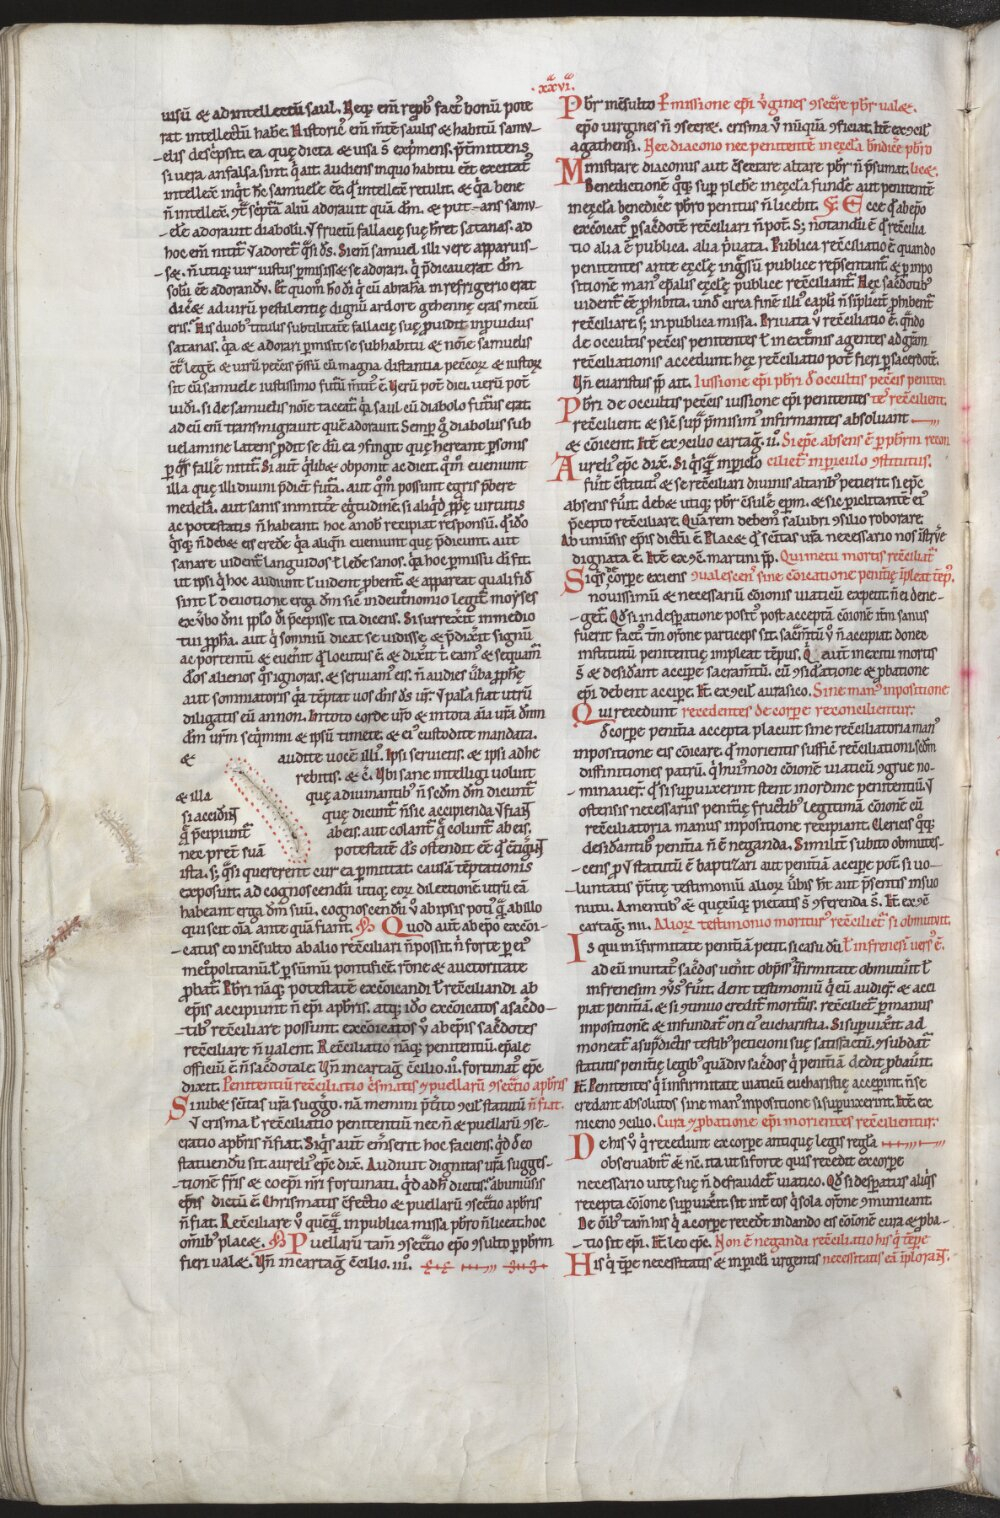 ·xxvi·
uisū & ad intellectū saul. Neq; eni reprobꝰ factꝰ bonū pote
rat intellectū habe. Historicꝰ eni mte saulis & habitū samu-
elis descpsit. ea quę dicta & uisa s̄ expmens. ptmittens
si uera an falsa sint. qd ait. audiens in quo habitu eet excitatꝰ
intellexit inqt hc samuele ee. qd intellexit retulit. & qa bene
n̄ intellexit. ꝯt scptā aliū adorauit quā dm̄. & put-ans samu-
ele adorauit diabolū. ut fructū fallacię suę hret satanas. ad
hoc eni nitit ut adoret qsi ds̄. Si eni samuel illi uere apparuis-
set. n̄ utiq; uir iustus pmisisset se adorari. q pdicauerat dm̄
solū ee adorandū. Et quom ho di q cū abrahā in refrigerio erat
dicet ad uirū pestilentię dignū ardore gehennę cras mecū
eris. His duobꝰ titulis subtilitate fallacię suę pdidit inprouidus
satanas. qa & adorari pmisit se sub habitu & noie samuelis
ꝯt legē. & uirū pctis pssū cū magna distantia pctor & iustor
sit cū samuele iustissimo futurū mtitꝰ ē. Uerū pot dici. uerū pot
uidi. si de samuelis noie taceat. qa saul cū diabolo futurꝰ erat.
ad eū eni transmigrauit que adorauit. Semp g diabolus sub
uelamine latens pdit se dū ea ꝯfingit quę hereant psonis
p qs fallere nitit. Si aut qlibet obponit ac dicit. qm eueniunt
illa quę illi diuini pdicit futura. aut qm possunt egris pbere
medelā. aut sanis inmittere egritudine. si aliqd ppę uirtutis
ac potestatis n̄ habeant. hoc a nob recipiat responsū. qd ido
qsq; n̄ debet eis credere qa aliqn eueniunt quę pdicunt. aut
sanare uident languidos l ledere sanos. qa hoc pmissu di fit.
ut ipsi q hoc audiunt l uident pbent. & appareat quali fid
sint l deuotione erga dm̄ sic in deutnomio legit moyses
ex ubo dni pplo di pcepisse ita dicens. Si surrexit in medio
tui ppha. aut q somniū dicat se uidisse. & pdixit signū
ac portentū & euenit qd locutus ē & dixit t eamꝰ & sequam
dos alienos qs ignoras. & seruiamꝰ eis. n̄ audies uba pphę
aut somniatoris. qa teptat uos dns ds ur. Ut pala fiat utrū
diligatis eū annon. In toto corde uro & in tota aia ura dnm
dm urm seqmini & ipsū timete. & eiꝰ custodite mandata.
& audite uoce illiꝰ. Ipsi seruietis. & ipsi adhe
rebitis. & c. Ubi sane intelligi uoluit
& illa quę a diuinantibꝰ n̄ scdm dm dicunt
si accidint quę dicunt n̄ sic accipienda ut fiant
q pcipiunt ab eis. aut colant q colunt ab eis.
nec preter suā potestate ds ostendit ee qd ꝯtigunt
ista. s; qsi quererent cur ea pmittat. causā teptationis
exposuit. ad cognoscendū utiq; eor dilectione. utrū eā
habeant erga dm suū. cognoscendū u ab ipsis poti q ab illo
qui scit oia ante quā fiant. Quod aut ab epo excoi-
catus eo incsulto ab alio recciliari n̄ possit. n̄ forte p eiꝰ
metpolitanū. l p summū pontifice. rone & auctoritate
probat. Pbri naq; potestate excoicandi l recciliandi ab
epis accipiunt n̄ epi a pbris. atq; ido excoicatos a sacdo-
tibꝰ recciliare possunt. excoicatos u ab epis sacdotes
recciliare n̄ ualent. Recciliatio naq; penitentiū. epale
officiū ē n̄ sacdotale. Un in cartag ccilio. ii. fortunatꝰ epc
dixit. Penitentiū recciliatio crismatis ꝯpuellarū ꝯsectio a pbris
Si iubet sctitas ura suggo. nā memini ptito ꝯcil statutū n̄ fiat.
ut crisma l recciliatio penitentiū nec n̄ & puellarū ꝯse-
cratio a pbris n̄ fiat. Siqs aut emserit hoc faciens. qd d eo
statuendū sit. aureliꝰ epc dix. Audiuit dignitas ura sugges-
tione fris & coepi nri fortunati. qd ad h dictis. ab uniuersis
epis dictū ē. Chrismatis cfectio & puellarū ꝯsectio a pbris
n̄ fiat. Recciliare u queq in publica missa pbro n̄ liceat. hoc
omibꝰ placet. Puellarū tam ꝯsectio epo ꝯsulto p pbrm
fieri ualet. Un in cartag ccilio. iii.
Pbr incsulto Pmissione epi ugines ꝯsecret pbr ualet.
epo uirgines n̄ ꝯsecret. crisma u nuqua ꝯficiat. Ite ex ꝯcil
agathensi. Nec diacono nec penitente in ęcclā bndicere pbro
Ministrare diaconus aut csecrare altare pbr n̄ psumat. licet.
Benedictione qq; sup plebe in ęcclā funde aut penitente
in ęcclā benedice pbro penitus n̄ licebit. Ecce qd ab epo
excoicat p sacdote recciliari n̄ pot. S; notandū ē qd reccilia
tio alia ē publica. alia priuata. Publica recciliatio ē quando
penitentes ante ęcclę ingssū publice repsentant. & p inpo
sitione manꝰ epalis ęcclę publice recciliant. Hec sacdotibꝰ
uident ee phibita. unde circa fine illiꝰ capli n̄ simplicit phibent
recciliare. s; in publica missa. Priuata u recciliatio ē. qndo
de occultis pctis penitentes l in extmis agentes ad gram
recciliationis accedunt. hec recciliatio pot fieri p sacerdote.
Un euaristus pp ait. Iussione epi pbri d occultis pctis peniten
Pbri de occultis pctis iussione epi penitentes tes reccilient.
reccilient. & sic sup pmisimꝰ infirmantes absoluant
& coicent. Ite ex ꝯcilio cartag. ii. Si epc absens ē p pbrm recon
Aureliꝰ epc dix. Si qsq in piclo cilietur in piculo ꝯstitutus.
fuit cstitutꝰ & se recciliari diuinis altaribꝰ petierit. si epc
absens fuit. debet utiq; pbr csulere epm. & sic piclitante eiꝰ
pcepto recciliare. Qua rem debemꝰ salubri ꝯsilio roborare.
Ab uniusis epis dictū ē. Placet qd sctitas ura necessario nos instrue
dignata ē. Ite ex ꝯc martini pp. Qui metu mortis recciliat
Siqs d corpe exiens ꝯualescens sine coicatione penitētię ipleat tep.
nouissimū & necessariū coionis uiaticū expetit. n̄ ei dene-
get. Qd si in despatione positꝰ post acceptā coione itm sanus
fuerit factꝰ. tm orone particeps sit. sacmtu u n̄ accipiat donec
institutū penitentię impleat tepus. Q aut in exitu mortis
s̄ & desidant accipe sacramtu. cū ꝯsidatione & pbatione
epi debent accipe. Ite ex ꝯcil aurasico. Sine manꝰ inpositione
Qui recedunt recedentes de corpe reconcilientur.
d corpe penitia accepta placuit sine recciliatoria manꝰ
inpositione eis coicare. qd morientis sufficit recciliationi. scdm
diffinitiones patrū. q huiꝰmodi coione uiaticū ꝯgrue no-
minauert. qd si supuixerint stent in ordine penitentiū. ut
ostensis necessariis penitetię fructibꝰ legitimā coione cū
recciliatoria manus inpositione recipiant. Clericis qq;
desidantibꝰ penitia n̄ ē neganda. Similit subito obmutes-
cens put statutū ē baptizari aut penitiā accipe pot. si uo-
luntatis ptite testimoniū alior uerbis het aut psentis in suo
nutu. Amentibꝰ & quęcūq; pietatis s̄ ꝯferenda s̄. Ite ex ꝯc
cartag. iiii. Alior testimonio moriturꝰ recciliet si obmutuit.
Is qui in infirmitate penitiā petit. si casu dū l in frenesi uersꝰ ē.
ad eū inuitatꝰ sacdos uenit obpssꝰ ifirmitate obmutuit l
in frenesim ꝯuersꝰ fuit. dent testimoniū q eū audiert. & acci
piat penitiā. & si ꝯtinuo credit moriturꝰ. recciliet p manus
inpositione. & infundat ori eiꝰ eucharistia. Si supuixit. ad
moneat a supdictis testibꝰ peticioni suę satisfactū. ꝯ subdat
statutis penitetię legibꝰ quādiu sacdos q penitiā dedit pbauit.
Ite. Penitentes q in infirmitate uiaticū eucharistię accepint. n̄ se
credant absolutos sine manꝰ inpositione si supuixerint. Ite ex
niceno ꝯcilio. Cura ꝯ pbatione epi morientes reccilientur.
De his u q recedunt ex corpe antiquę legis regla
obseruabit & nc. ita ut si forte quis recedit ex corpe
necessario uitę suę n̄ defraudet uiatico. Qd si despatus aliqs
recepta coione supuixit. sit int eos q sola orone ꝯmunicant.
De oibꝰ tam his q a corpe recedt indando eis coione cura & pba-
tio sit epi. Ite leo epc. Non ē neganda recciliatio his q tpre
His q tpre necessitatis & in picli urgentis necessitatis eā iplorant.